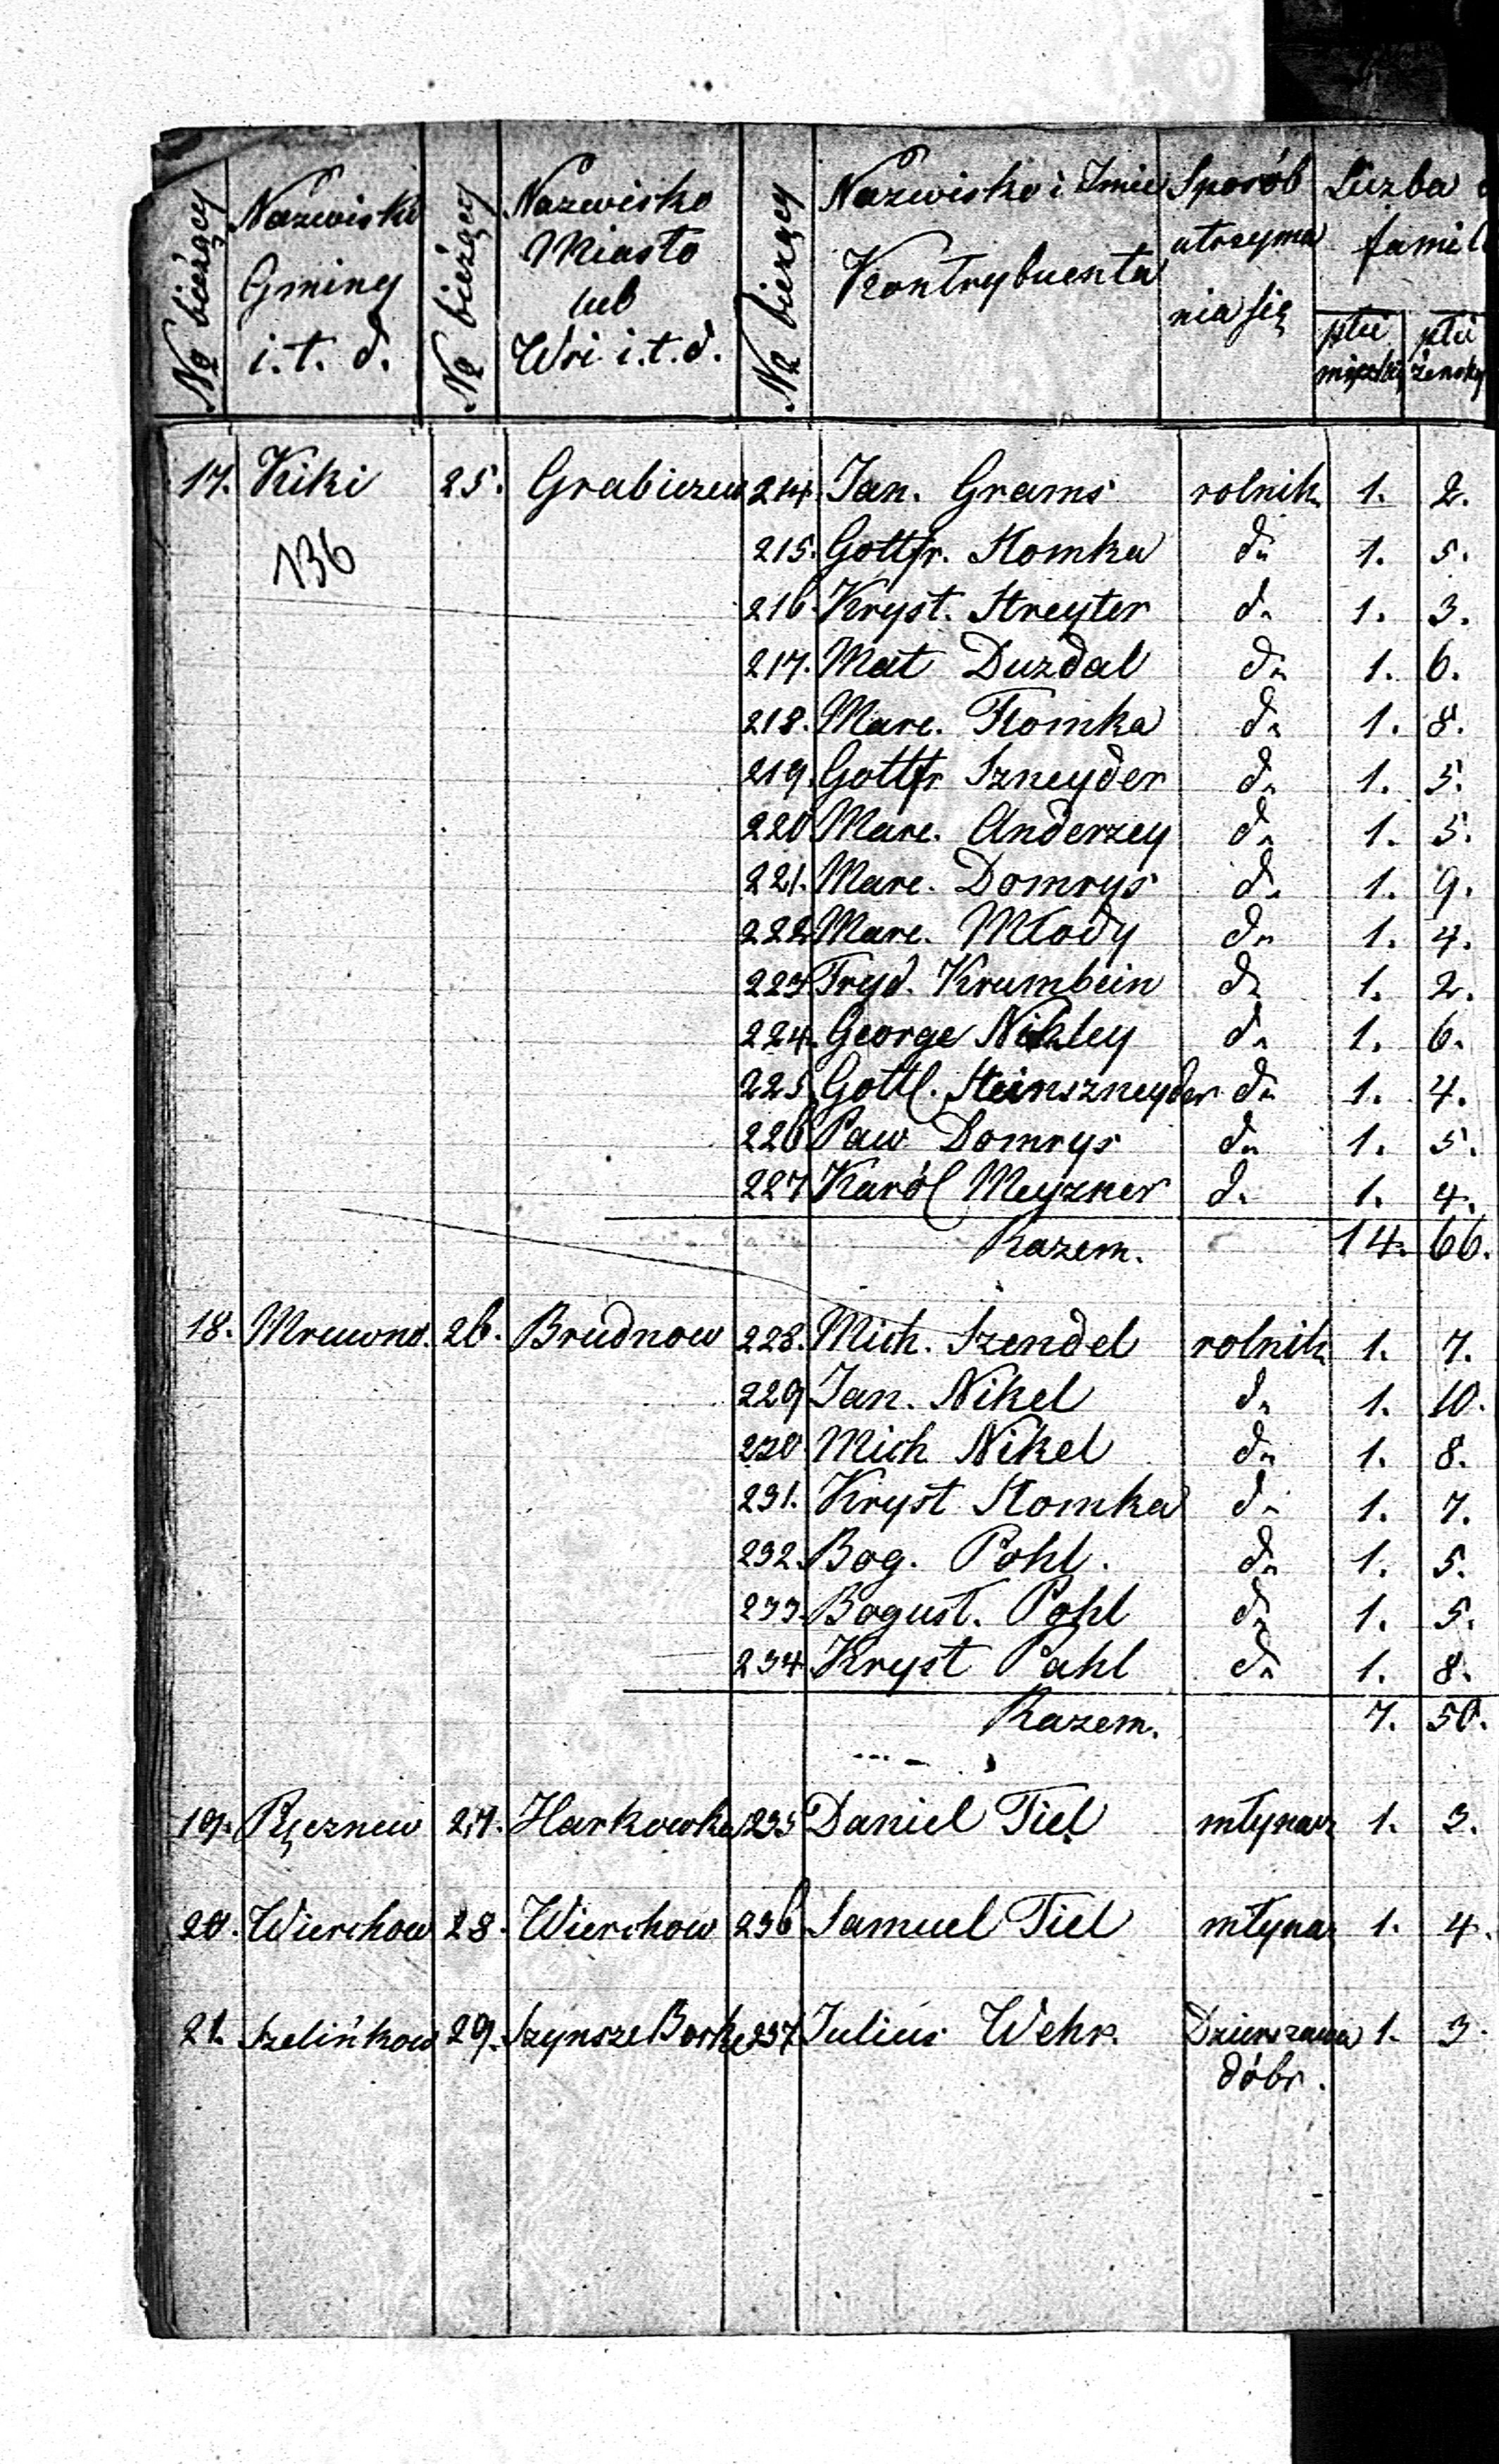 № bieżący Nazwisko Gminy i.t.d. № bieżący Nazwisko Miasto lub Wsi i.t.d. № bieżący Nazwisko i Imie Kontrybuenta Sposób utrzyma nia się Liczba famil płci męzki płci żensky
17. Kiki 25. Grabiszew 214. Jan. Grams rolnik 1. 2.
136
215. Gottfr. Stomka do 1. 5.
216. Kryst. Streyter do 1. 3.
217. Mat Duzdal do 1. 6.
218. Marc. Tomka do 1. 8.
219. Gottfr Szneyder do 1. 5.
220 Marc. Anderzey do 1. 5.
221. Marc. Domrys do 1. 9.
222 Marc. Młody do 1. 4.
223 Fryd. Krumbein do 1. 2.
224. George Nikley do 1. 6.
225 Gottl. Steinszneyder do 1. 4.
226 Paw Domrys do 1. 5.
227 Karól Meyzner do 1. 4.
Razem. 14. 66.
18. Mrowno. 26. Brudnow 228. Mich. Szendel rolnik 1. 7.
229 Jan. Nikel do 1. 10.
230 Mich Nikel do 1. 8.
231. Kryst Stomka do 1. 7.
232. Bog. Pohl. do 1. 5.
233. Bogusł. Pohl do 1. 5.
234 Kryst Pahl do 1. 8.
Razem. 7. 50.
19. Pęcznew 27. Harkowka 235 Daniel Tiel młynarz 1. 3.
20. Wierchow 28. Wierchow 236 Samuel Tiel młynar 1. 4.
21. Szelińkow 29. Borki 237 Julius Wehr Dzierzawa 1. 3.
dóbr.